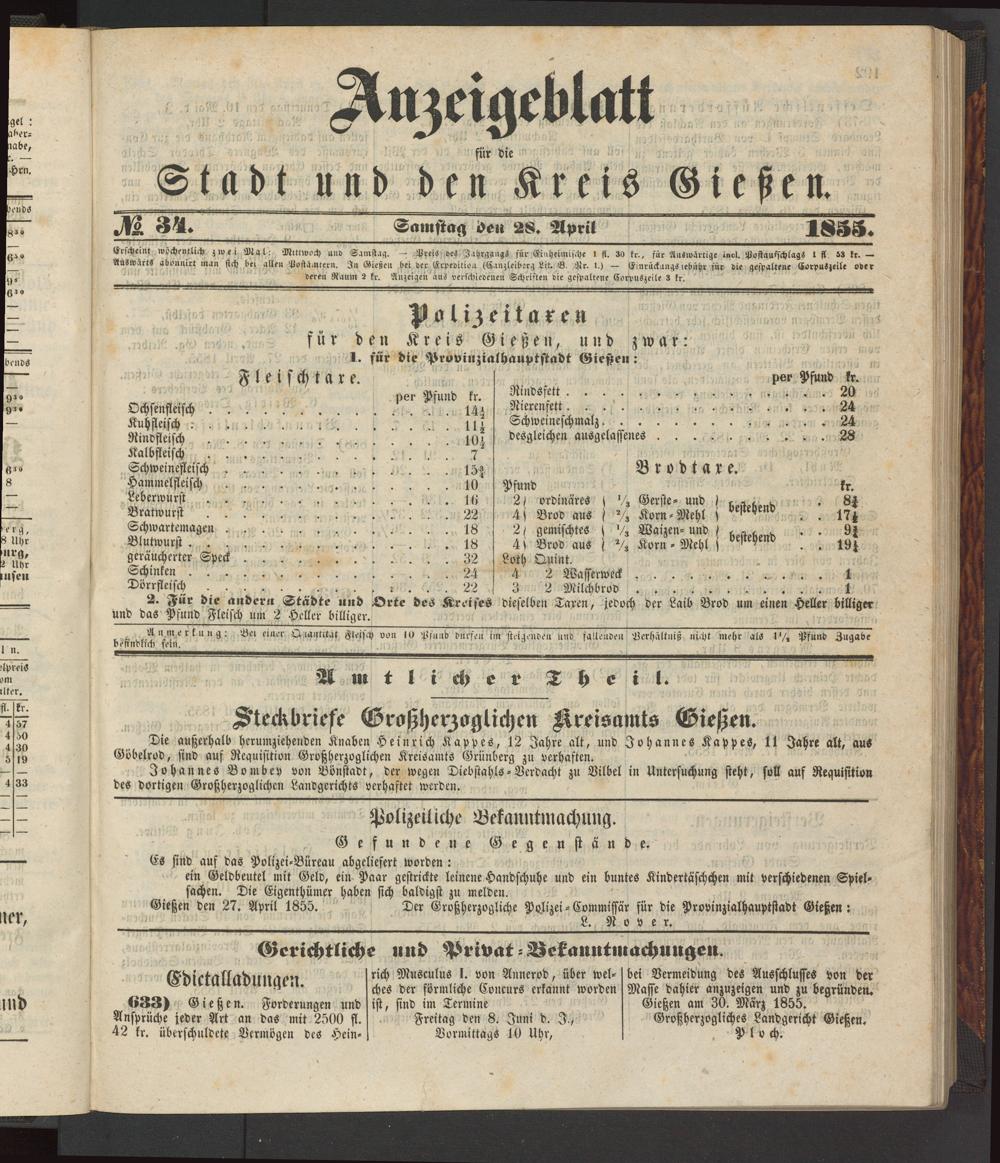 Anzeigeblatt
für die
Stadt und den Kreis Gießen.
№ 34. Samstag den 28. April 1855.
Erscheint wöchentlich zwei Mal: Mittwoch und Samstag. — Preis des Jahrgangs für Einheimische 1 fl. 30 kr., für Auswärtige incl. Postaufschlags 1 fl. 53 kr. —
Auswärts abonnirt man sich bei allen Postämtern. In Gießen bei der Expedition (Canzleiberg Lit. B. Nr. 1.) — Einrückungsgebühr für die gespaltene Corpuszeile oder
deren Raum 2 kr. Anzeigen aus verschiedenen Schriften die gespaltene Corpuszeile 3 kr.
Polizeitaxen
für den Kreis Gießen, und zwar:
1. für die Provinzialhauptstadt Gießen:
Fleischtaxe.
per Pfund kr.
Ochsenfleisch 14½
Kuhfleisch 11½
Rindfleisch 10½
Kalbfleisch 7
Schweinefleisch 15¾
Hammelfleisch 10
Leberwurst 16
Bratwurst 22
Schwartemagen 18
Blutwurst 18
geräucherter Speck 32
Schinken 24
Dörrfleisch 22
per Pfund kr.
Rindsfett 20
Nierenfett 24
Schweineschmalz 24
desgleichen ausgelassenes 28
Brodtaxe.
Pfund kr.
2 } ordinäres { 1/3 Gerste- und } bestehend 8¾
4 } Brod aus { 2/3 Korn-Mehl } 17½
2 } gemischtes { 1/3 Waizen- und } bestehend 9¾
4 } Brod aus { 2/3 Korn-Mehl } 19½
Loth Quint.
4 2 Wasserweck 1
3 2 Milchbrod 1
2. Für die andern Städte und Orte des Kreises dieselben Taxen, jedoch der Laib Brod um einen Heller billiger
und das Pfund Fleisch um 2 Heller billiger.
Anmerkung: Bei einer Quantität Fleisch von 10 Pfund dürfen im steigenden und fallenden Verhältniß nicht mehr als 1 1/2 Pfund Zugabe
befindlich sein.
Amtlicher Theil.
Steckbriefe Großherzoglichen Kreisamts Gießen.
Die außerhalb herumziehenden Knaben Heinrich Kappes, 12 Jahre alt, und Johannes Kappes, 11 Jahre alt, aus
Göbelrod, sind auf Requisition Großherzoglichen Kreisamts Grünberg zu verhaften.
Johannes Bombey von Bönstadt, der wegen Diebstahls-Verdacht zu Vilbel in Untersuchung steht, soll auf Requisition
des dortigen Großherzoglichen Landgerichts verhaftet werden.
Polizeiliche Bekanntmachung.
Gefundene Gegenstände.
Es sind auf das Polizei-Büreau abgeliefert worden:
ein Geldbeutel mit Geld, ein Paar gestrickte leinene Handschuhe und ein buntes Kindertäschchen mit verschiedenen Spiel-
sachen. Die Eigenthümer haben sich baldigst zu melden.
Gießen den 27. April 1855. Der Großherzogliche Polizei-Commissär für die Provinzialhauptstadt Gießen:
L. Nover.
Gerichtliche und Privat-Bekanntmachungen.
Edictalladungen.
633) Gießen. Forderungen und
Ansprüche jeder Art an das mit 2500 fl.
42 kr. überschuldete Vermögen des Hein-
rich Musculus I. von Annerod, über wel-
ches der förmliche Concurs erkannt worden
ist, sind im Termine
Freitag den 8. Juni d. J.,
Vormittags 10 Uhr,
bei Vermeidung des Ausschlusses von der
Masse dahier anzuzeigen und zu begründen.
Gießen am 30. März 1855.
Großherzogliches Landgericht Gießen.
Ploch.